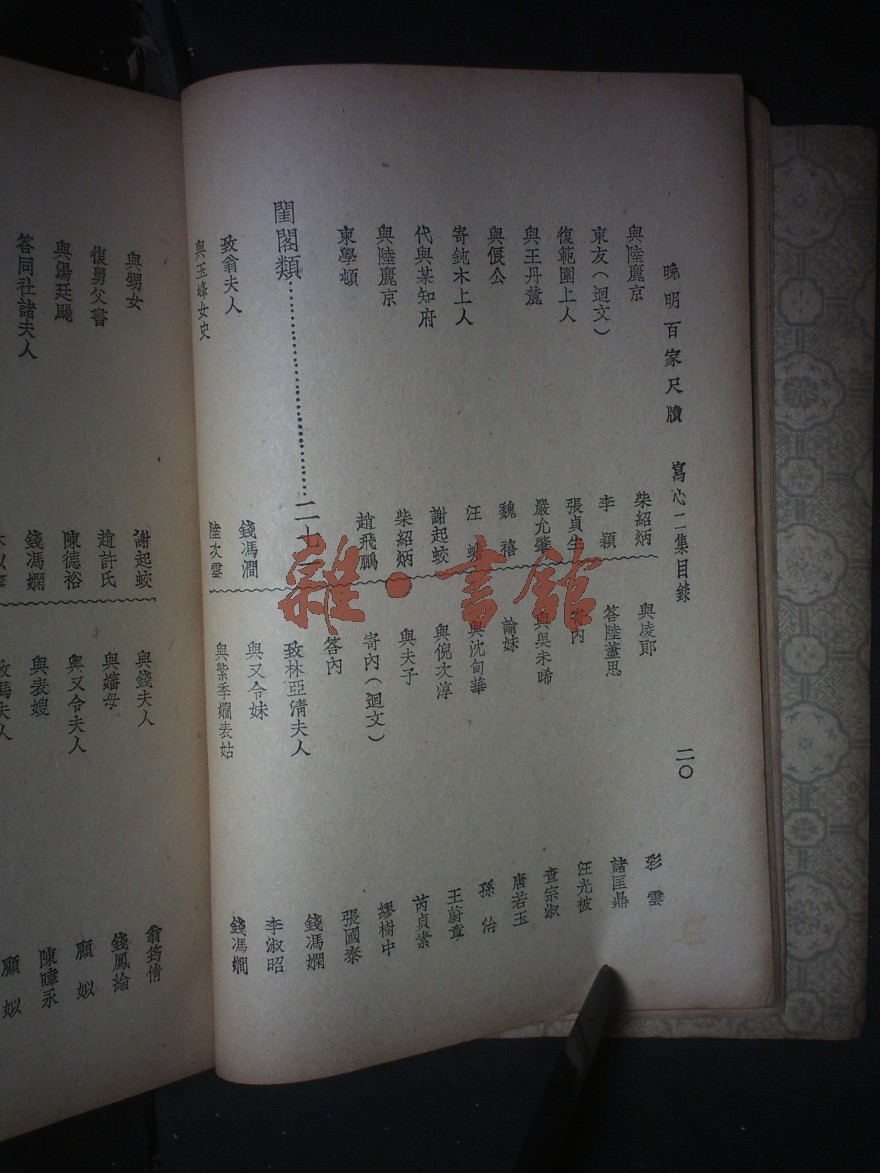 晚明百家尺牘 寫心二集目錄 二〇
與陸麗京 柴紹炳
柬友(迴文) 李穎
復範園上人 張貞生
與王丹麓 嚴允肇
與偎公 魏禧
寄鈍木上人 汪
代與某知府 謝起蛟
與陸麗京 柴紹炳
柬學頓 趙飛鵬
閨閣類……二七
致翁夫人 錢馮澗
與玉峰女史 陸次雲
與凌郎 彩雲
答陸藎思 諸匡鼎
內 汪光被
與吳未晞 查宗淑
諭妹 唐若玉
與沈甸華 孫治
與倪次淳 王蔚章
與夫子 芮貞素
寄內(迴文) 繆樹中
答內 張國泰
致林亞清夫人 錢馮嫻
與又令妹 李淑昭
與紫季嫻表姑 錢馮嫻
與甥女 謝起蛟
復舅父書 趙許氏
與湯廷颺 陳德裕
答同社諸夫人 錢馮嫻
與錢夫人 翁筠倩
與嬸母 錢鳳綸
與又令夫人 顧姒
與表嫂 陳暐永
馮夫人 顧姒
雜·書館